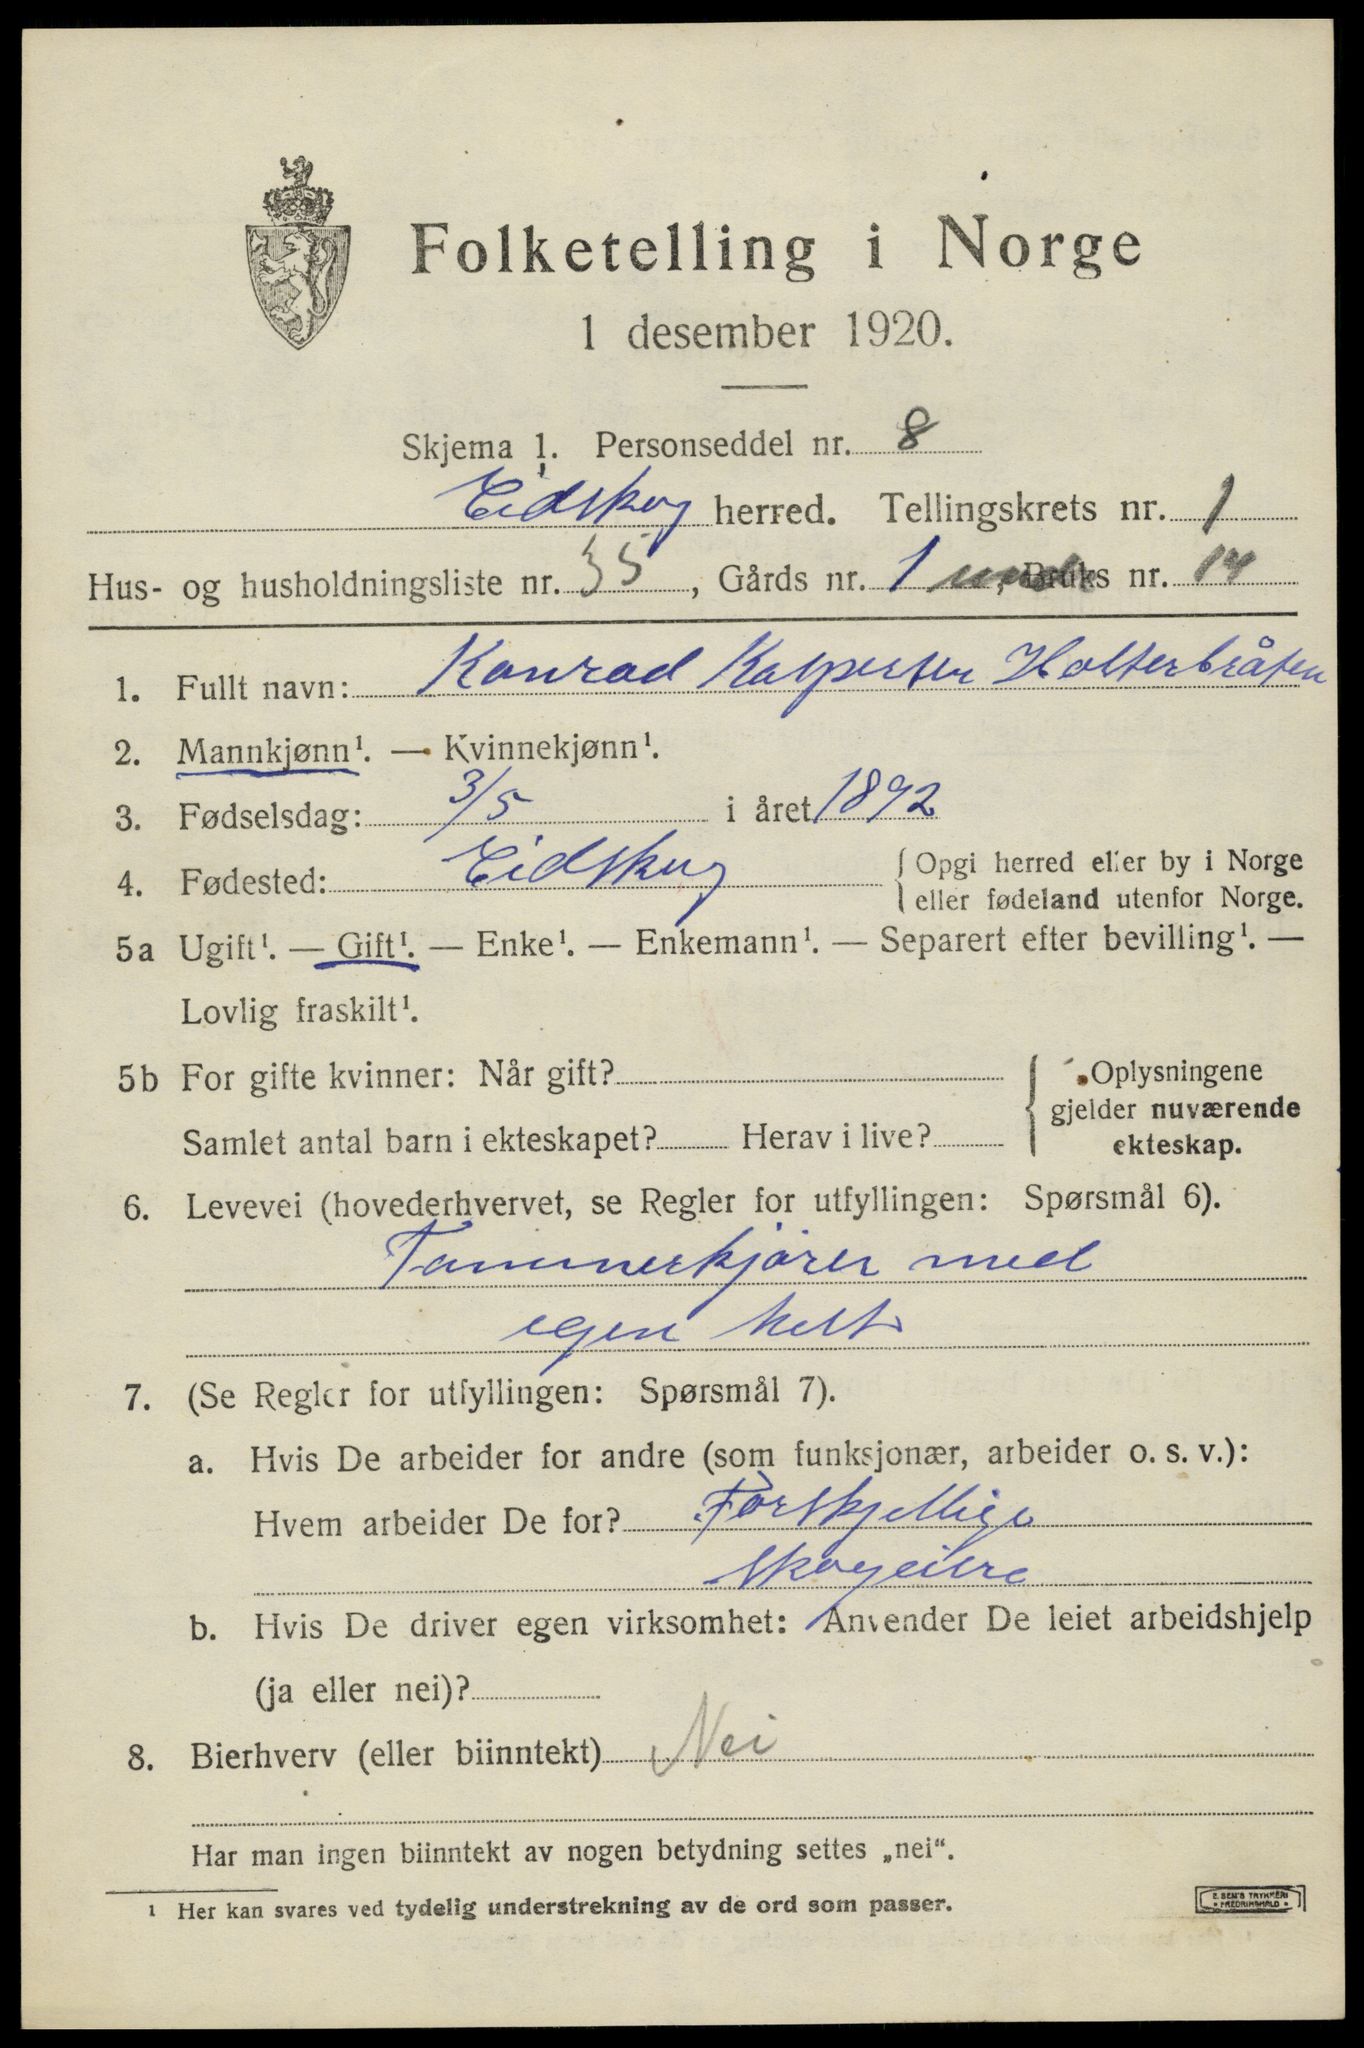 Folketelling i Norge
1 desember 1920.
Skjema 1. Personseddel nr. 8
Eidskog herred. Tellingskrets nr. 1
Hus- og husholdningsliste nr. 35, Gårds nr. 1, Bruks nr. 14
1. Fullt navn: Konrad Kaspersen Holterbråten
2. Mannkjønn¹. — Kvinnekjønn¹.
3. Fødselsdag: 3/5 i året 1892
4. Fødested: Eidskog { Opgi herred eller by i Norge
eller fødeland utenfor Norge.
5a Ugift¹. — Gift¹. — Enke¹. — Enkemann¹. — Separert efter bevilling¹. —
Lovlig fraskilt¹.
5b For gifte kvinner: Når gift? { Oplysningene
gjelder nuværende
Samlet antal barn i ekteskapet? Herav i live? ekteskap.
6. Levevei (hovederhvervet, se Regler for utfyllingen: Spørsmål 6).
Tømmerkjører med
egen hest
7. (Se Regler for utfyllingen: Spørsmål 7).
a. Hvis De arbeider for andre (som funksjonær, arbeider o. s. v.):
Hvem arbeider De for? Forskjellige
skogeiere
b. Hvis De driver egen virksomhet: Anvender De leiet arbeidshjelp
(ja eller nei)?
8. Bierhverv (eller biinntekt) Nei
Har man ingen biinntekt av nogen betydning settes „nei“.
¹ Her kan svares ved tydelig understrekning av de ord som passer.
E. SEM'S TRYKKERI
FREDRIKSHALD